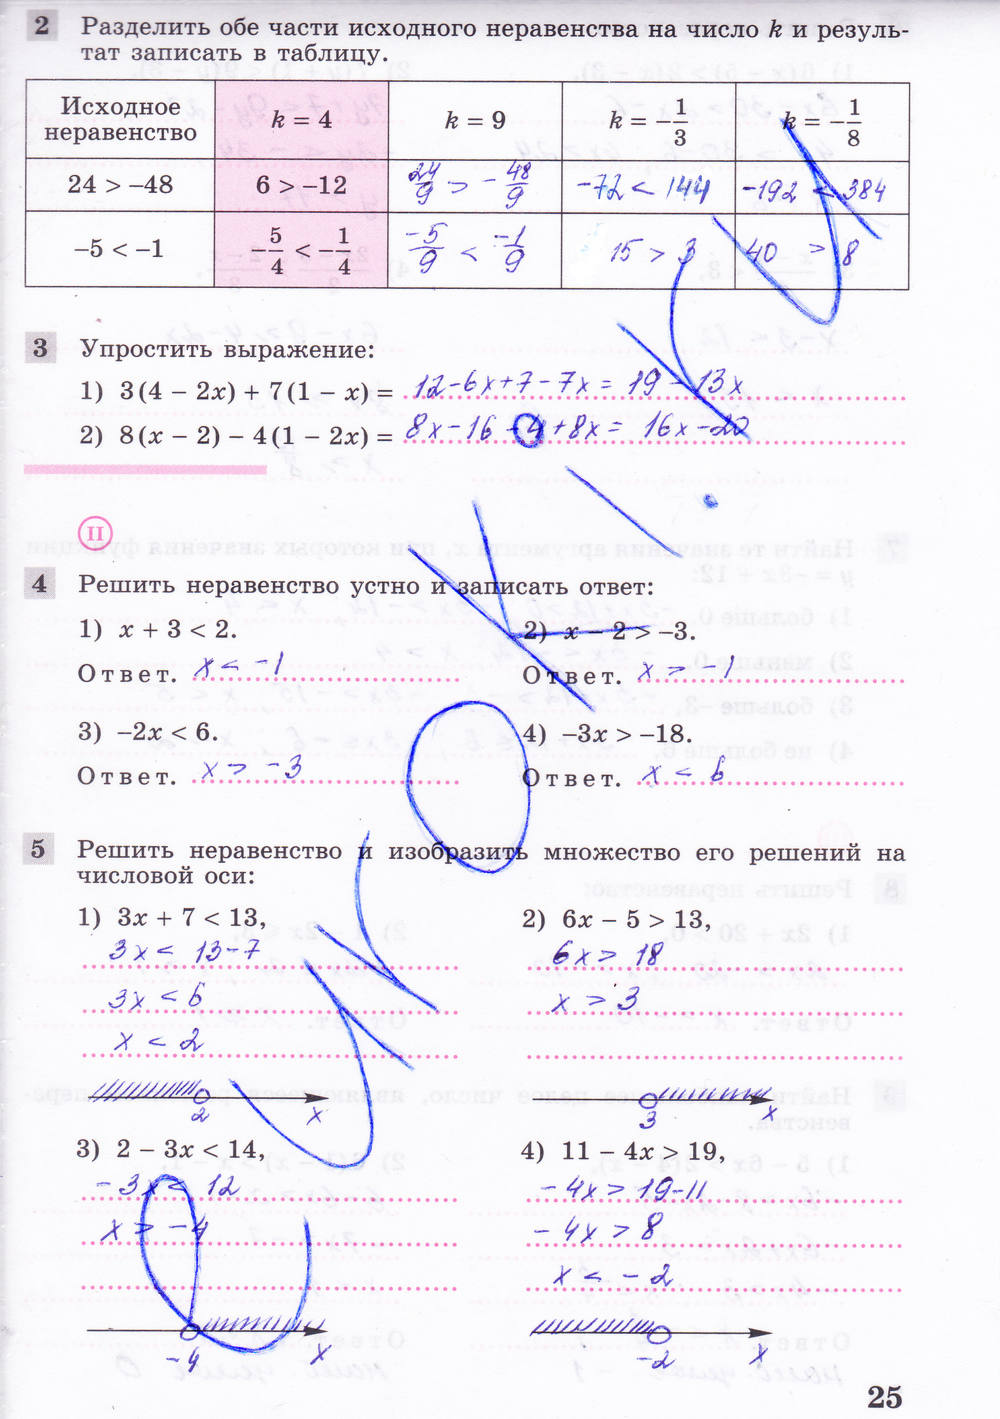 2 Разделить обе части исходного неравенства на число k и резуль-
тат записать в таблицу.
Исходное неравенство k = 4 k = 9 k = -1/3 k = -1/8
24 > -48 6 > -12 24/9 > -48/9 -72 < 144 -192 < 384
-5 < -1 -5/4 < -1/4 -5/9 < -1/9 15 > 3 40 > 8
3 Упростить выражение:
1) 3(4 - 2x) + 7(1 - x) = 12-6x+7-7x = 19-13x
2) 8(x - 2) - 4(1 - 2x) = 8x-16-4+8x = 16x-20
II
4 Решить неравенство устно и записать ответ:
1) x + 3 < 2. 2) x - 2 > -3.
Ответ. x < -1 Ответ. x > -1
3) -2x < 6. 4) -3x > -18.
Ответ. x > -3 Ответ. x < 6
5 Решить неравенство и изобразить множество его решений на
числовой оси:
1) 3x + 7 < 13, 2) 6x - 5 > 13,
3x < 13-7 6x > 18
3x < 6 x > 3
x < 2
2 x 3 x
3) 2 - 3x < 14, 4) 11 - 4x > 19,
-3x < 12 -4x > 19-11
x > -4 -4x > 8
x < -2
-4 x -2 x
25